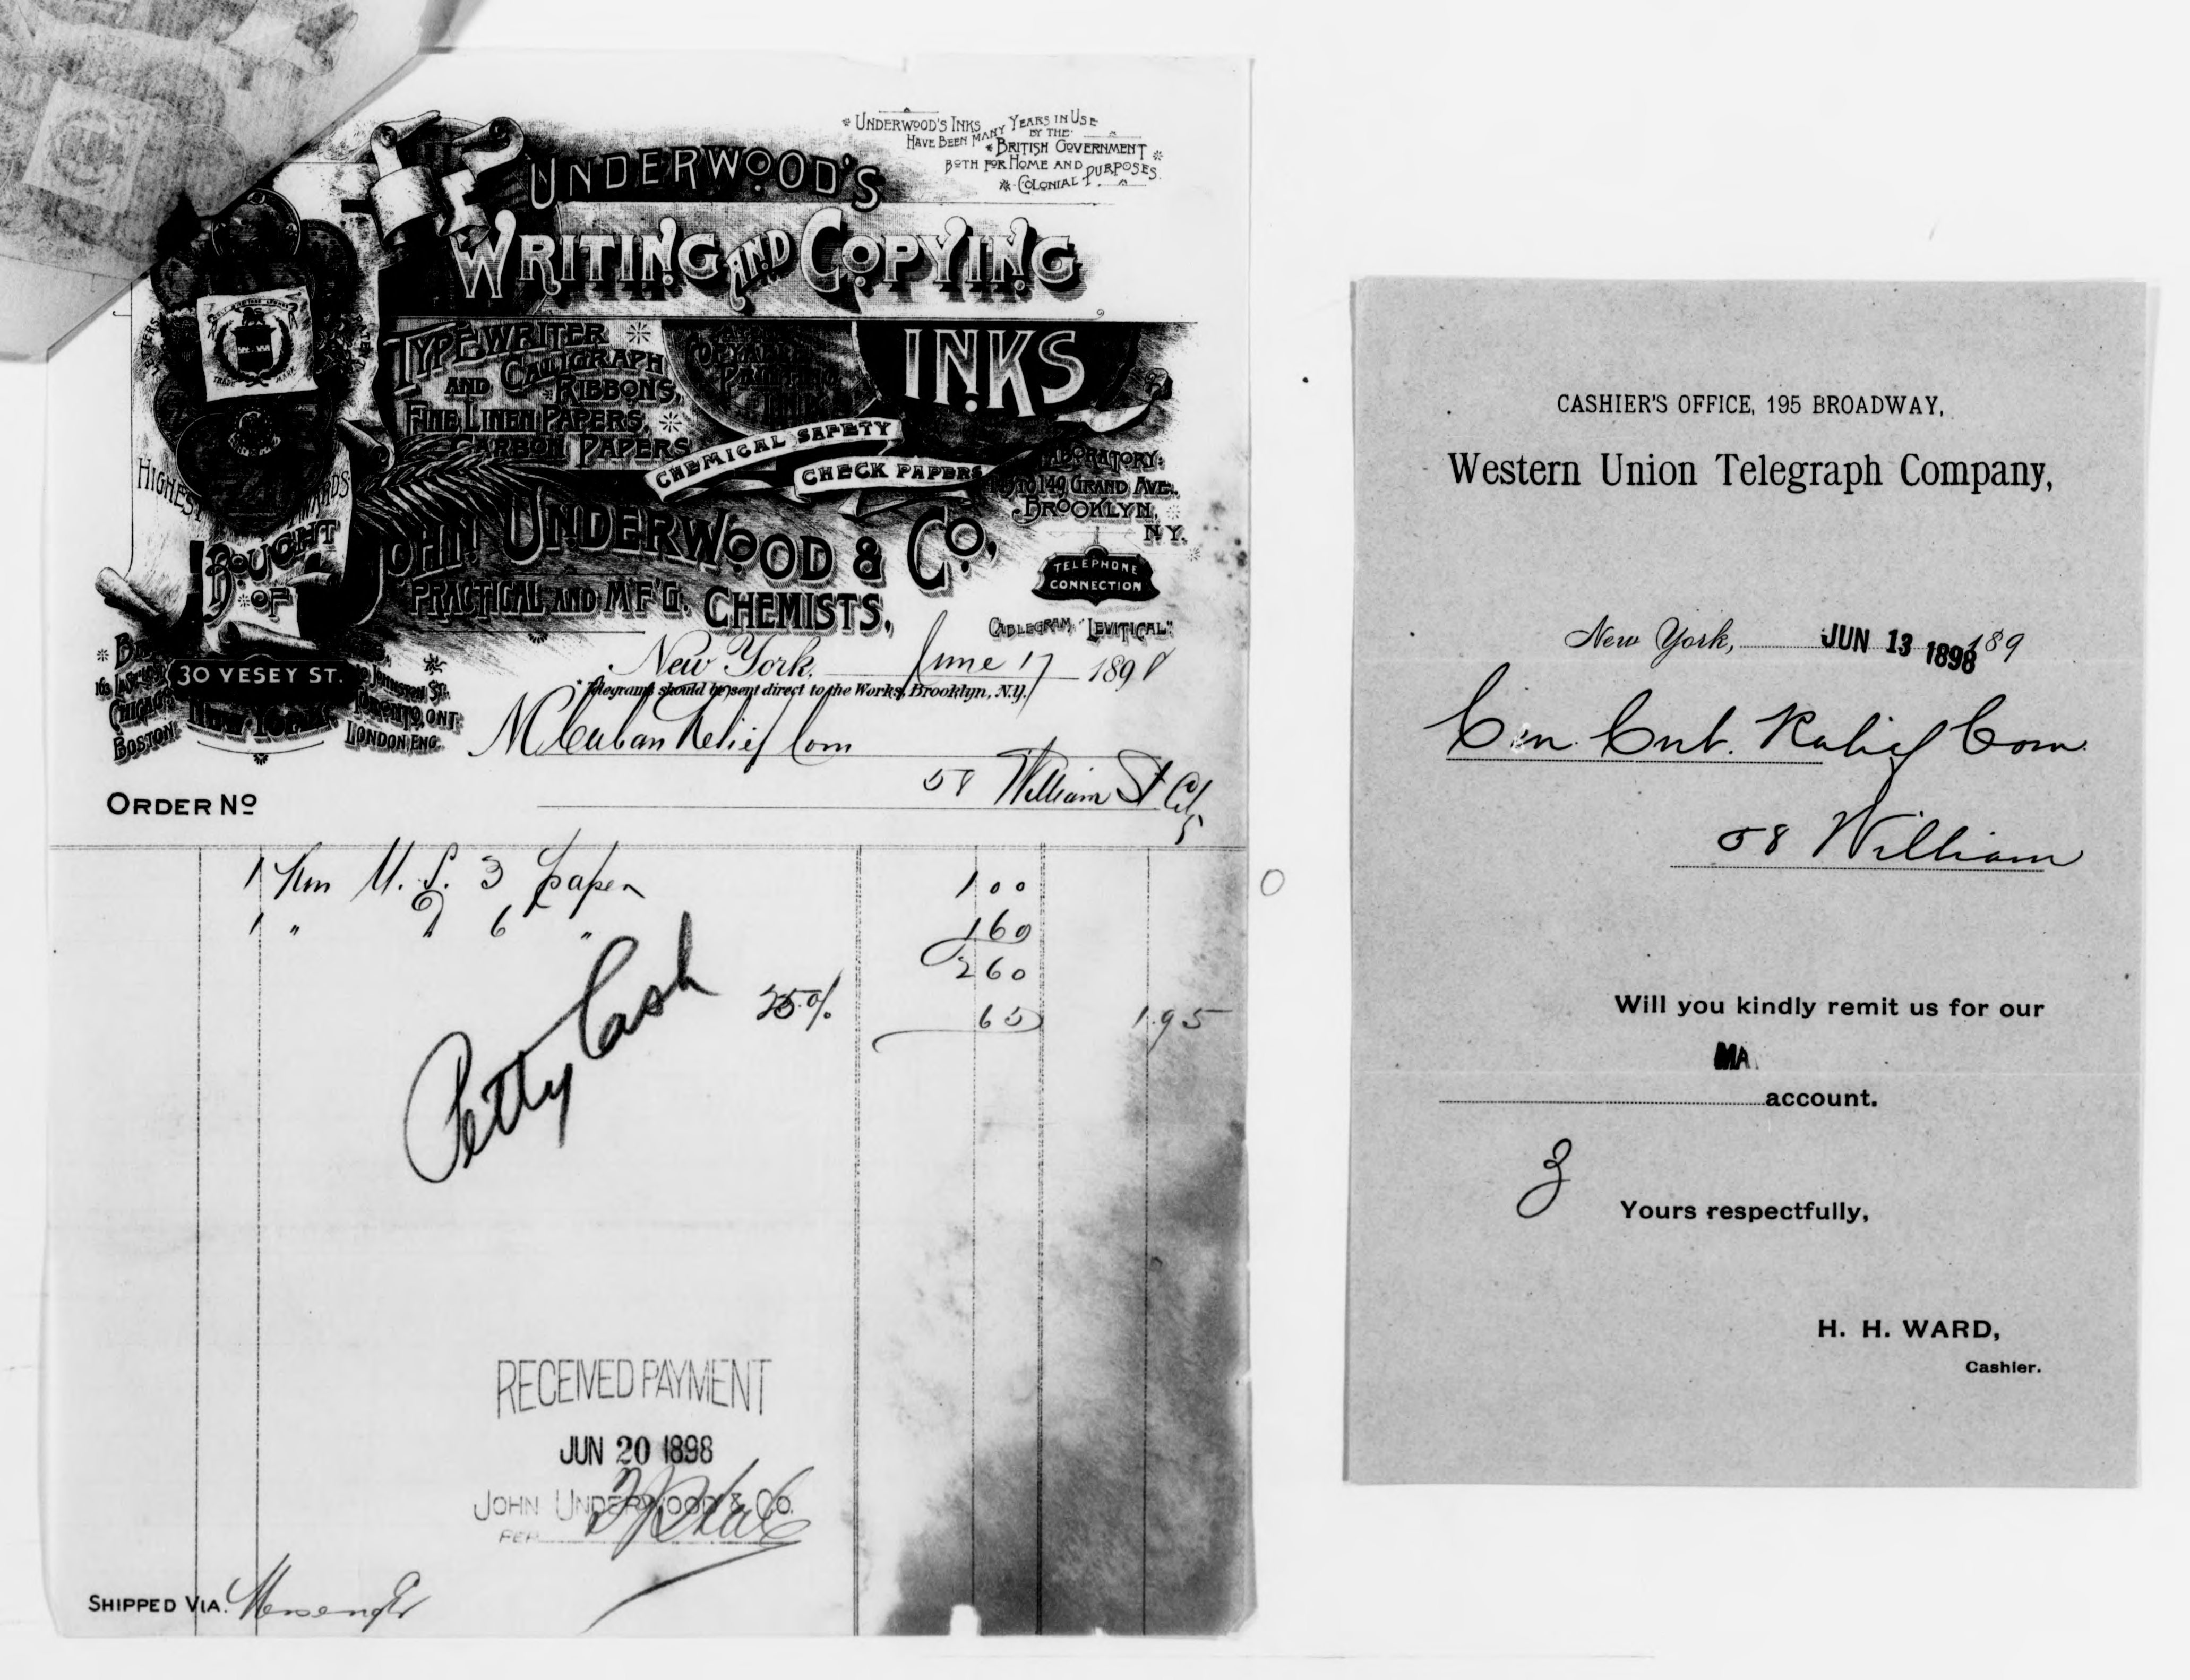 UNDERWOOD'S INKS
HAVE BEEN MANY YEARS IN USE
BY THE
BRITISH GOVERNMENT
BOTH FOR HOME AND
COLONIAL PURPOSES
UNDERWOOD'S
WRITING AND COPYING
INKS
TYPEWRITER
AND CALIGRAPH
RIBBONS,
FINE LINEN PAPERS,
CARBON PAPERS
CHEMICAL SAFETY
CHECK PAPERS
LABORATORY:
TO 149 GRAND AVE.
BROOKLYN,
N.Y.
TRADE MARK
HIGHEST AWARDS
BOUGHT
OF
JOHN UNDERWOOD & CO,
PRACTICAL AND M'F'G. CHEMISTS,
TELEPHONE
CONNECTION
CABLEGRAM, "LEVITICAL"
30 VESEY ST.
NEW YORK
163 LA SALLE
CHICAGO
BOSTON
JOHNSTON ST.
TORONTO, ONT.
LONDON, ENG.
New York, June 17 1898
Telegrams should be sent direct to the Works, Brooklyn, N.Y.
M Cuban Relief Com
58 William St City
ORDER No
1 Rm U. S. 3 paper 1 00
1 " 6 " 1 60
2 60
25% 65 1.95
Petty Cash
RECEIVED PAYMENT
JUN 20 1898
JOHN UNDERWOOD & CO.
PER
SHIPPED VIA. Messenger
CASHIER'S OFFICE, 195 BROADWAY,
Western Union Telegraph Company,
New York, JUN 13 1898 189
Cen. Cub. Relief Com.
58 William
Will you kindly remit us for our
MA
account.
Yours respectfully,
H. H. WARD,
Cashier.